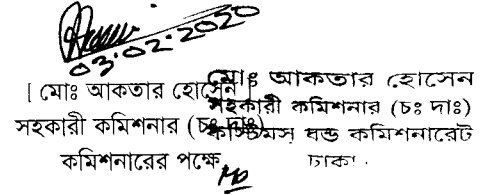 03.02.2020
[ মোঃ আকতার হোসেন ]
সহকারী কমিশনার (চঃ দাঃ)
কমিশনারের পক্ষে
মোঃ আকতার হোসেন
সহকারী কমিশনার (চঃ দাঃ)
কাস্টমস বন্ড কমিশনারেট
ঢাকা।